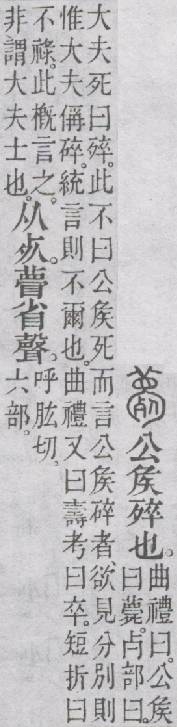 薨公矦𣨛也。曲禮曰。公矦
曰薨。歺部曰。
大夫死曰𣨛。此不曰公矦死而言公矦𣨛者。欲見分別則
惟大夫偁𣨛。統言則不爾也。曲禮又曰。壽考曰卒。短折曰
不祿。此槪言之。
非謂大夫士也。从死。瞢省聲。呼肱切。
六部。